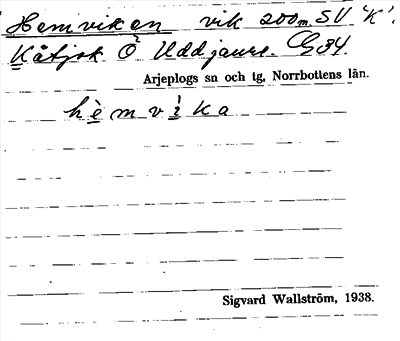 Hemviken vik 200 m SV 'K'.
Kåtjok Ö Uddjaure.
Arjeplogs sn och tg, Norrbottens län.
hèmvika
Sigvard Wallström, 1938.